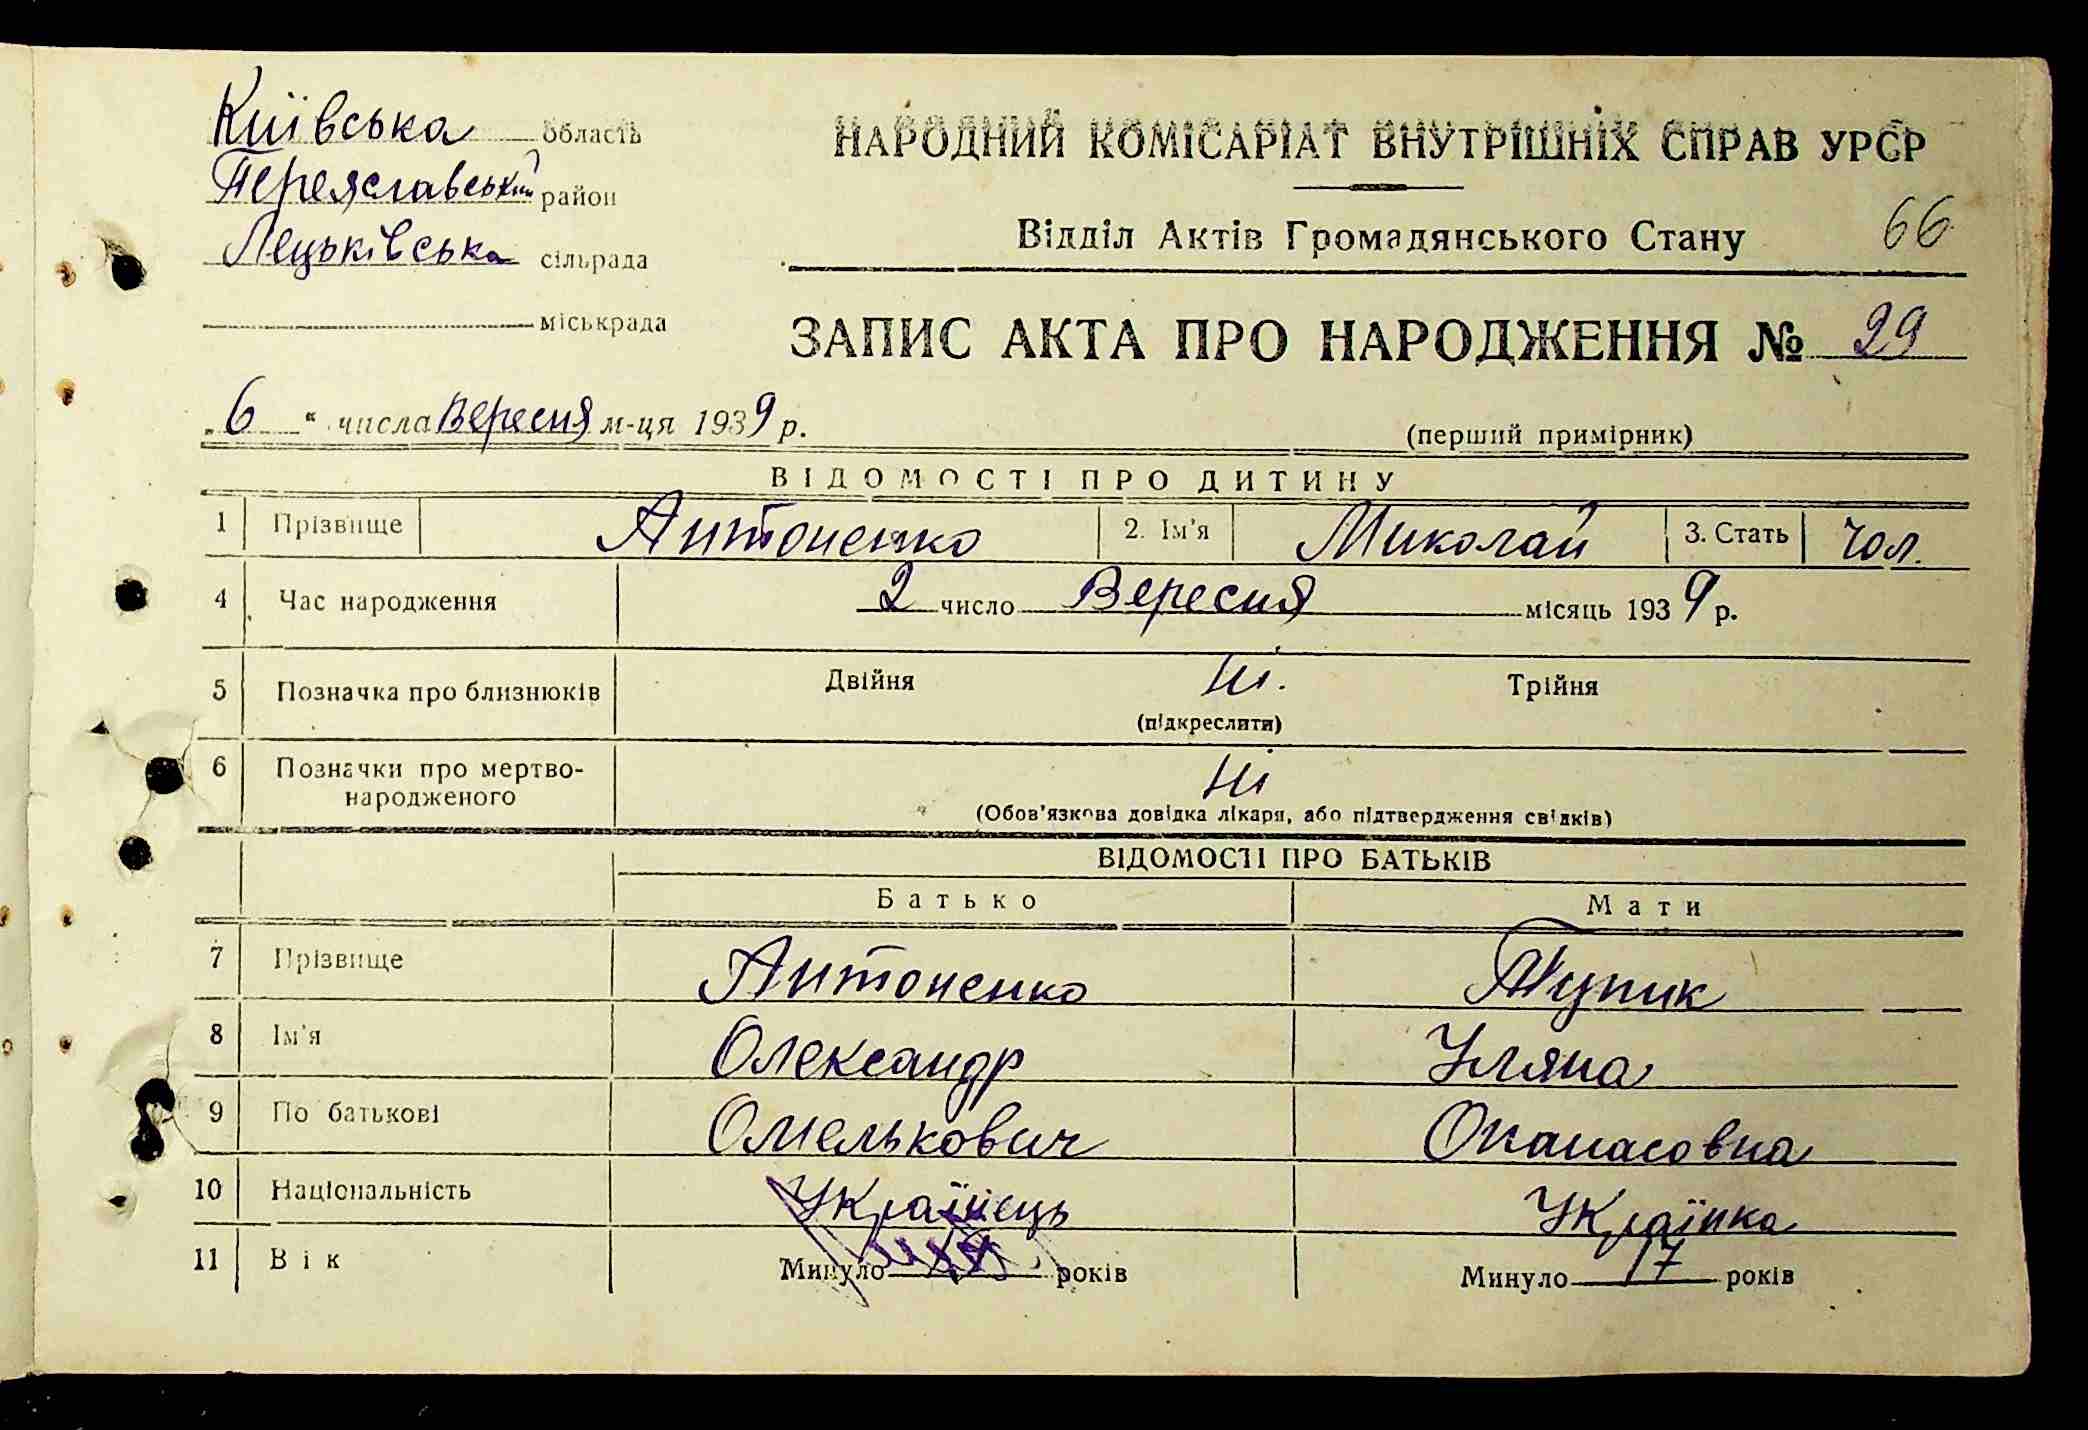 Київська область
Переяславський район
Лецьківська сільрада
міськрада
НАРОДНИЙ КОМІСАРІАТ ВНУТРІШНІХ СПРАВ УРСР
Відділ Актів Громадянського Стану
66
ЗАПИС АКТА ПРО НАРОДЖЕННЯ № 29
„6“ числа Вересня м-ця 1939 р.
(перший примірник)
ВІДОМОСТІ ПРО ДИТИНУ
1 Прізвище Антоненко 2. Ім'я Миколай 3. Стать чол.
4 Час народження 2 число Вересня місяць 1939 р.
5 Позначка про близнюків Двійня Ні. Трійня
(підкреслити)
6 Позначки про мертво-
народженого Ні
(Обов'язкова довідка лікаря, або підтвердження свідків)
ВІДОМОСТІ ПРО БАТЬКІВ
Батько Мати
7 Прізвище Антоненко Тупик
8 Ім'я Олександр Уляна
9 По батькові Омелькович Опанасовна
10 Національність Українець Українка
11 Вік Минуло років Минуло 17 років